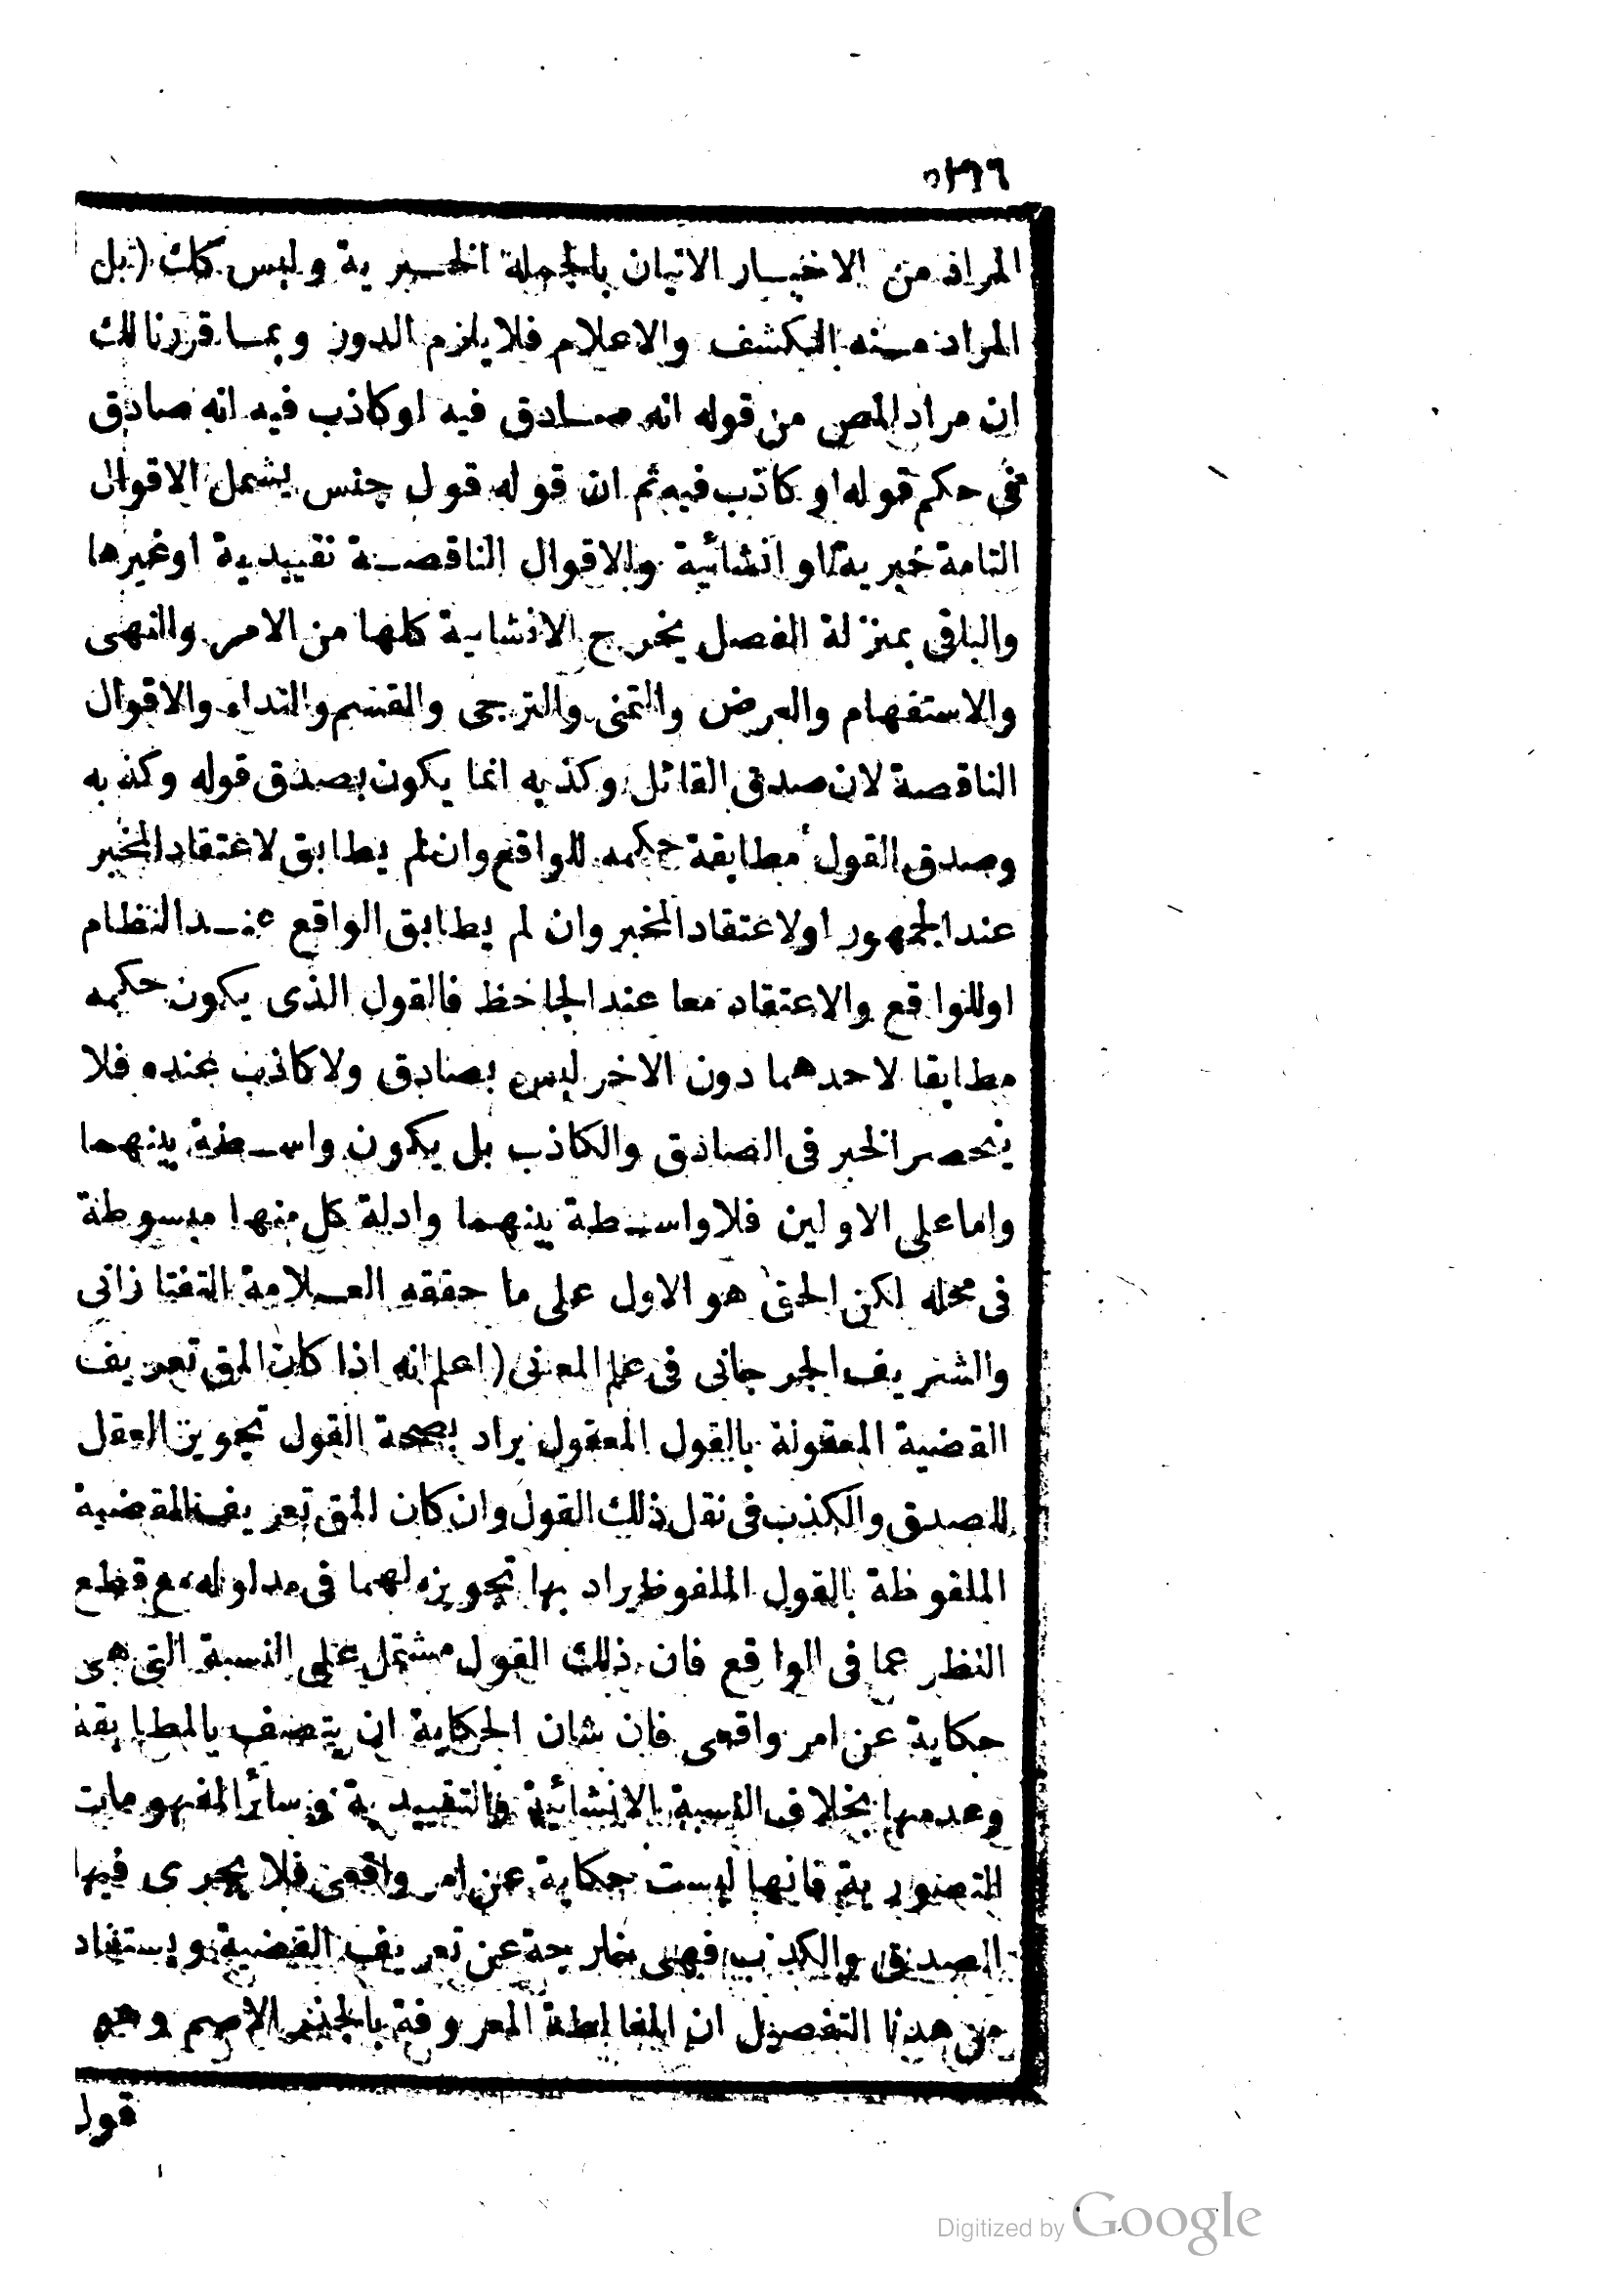 المراد من الاخبار الاتيان بالجملة الخبرية وليس كك (بل
المراد منه الكشف والاعلام فلا يلزم الدور وبما قررنا لك
ان مراد المص من قوله انه صادق فيه اوكاذب فيه انه صادق
فى حكم قوله او كاذب فيه ثم ان قوله قول جنس يشمل الاقوال
التامة خبرية او انشائية والاقوال الناقصة تقييدية اوغيرها
والباقى بمنزلة الفصل يخرج الانشاية كلها من الامر والنهى
والاستفهام والعرض والتمنى والترجى والقسم والنداء والاقوال
الناقصة لان صدق القائل وكذبه انما يكون بصدق قوله وكذبه
وصدق القول مطابقة حكمه للواقع وان لم يطابق لاعتقاد المخبر
عند الجمهور اولاعتقاد المخبر وان لم يطابق الواقع عند النظام
اوللواقع والاعتقاد معا عند الجاحظ فالقول الذى يكون حكمه
مطابقا لاحدهما دون الاخر ليس بصادق ولاكاذب عنده فلا
ينحصر الخبر فى الصادق والكاذب بل يكون واسطة بينهما
واما على الاولين فلا واسطة بينهما وادلة كل منها مبسوطة
فى محله لكن الحق هو الاول على ما حققه العلامة التفتازانى
والشريف الجرجانى فى علم المعنى (اعلم انه اذا كان المق تعريف
القضية المعقولة بالقول المعقول يراد بصحة القول تجويز العقل
للصدق والكذب فى نقل ذلك القول وان كان المق تعريف القضية
الملفوظة بالقول الملفوظ يراد بها تجويزه لهما فى مدلوله مع قطع
النظر عما فى الواقع فان ذلك القول مشتمل على النسبة التى هى
حكاية عن امر واقعى فان شان الحكاية ان يتصف بالمطابقة
وعدمها بخلاف النسبة الانشائية والتقييدية وسائر المفهومات
التصورية فانها ليست حكاية عن امر واقعى فلا يجرى فيها
الصدق والكذب فهى خارجة عن تعريف القضية ويستفاد
من هذا التفصيل ان المغالطة المعروفة بالجذر الاصم وهو
قول
Digitized by Google